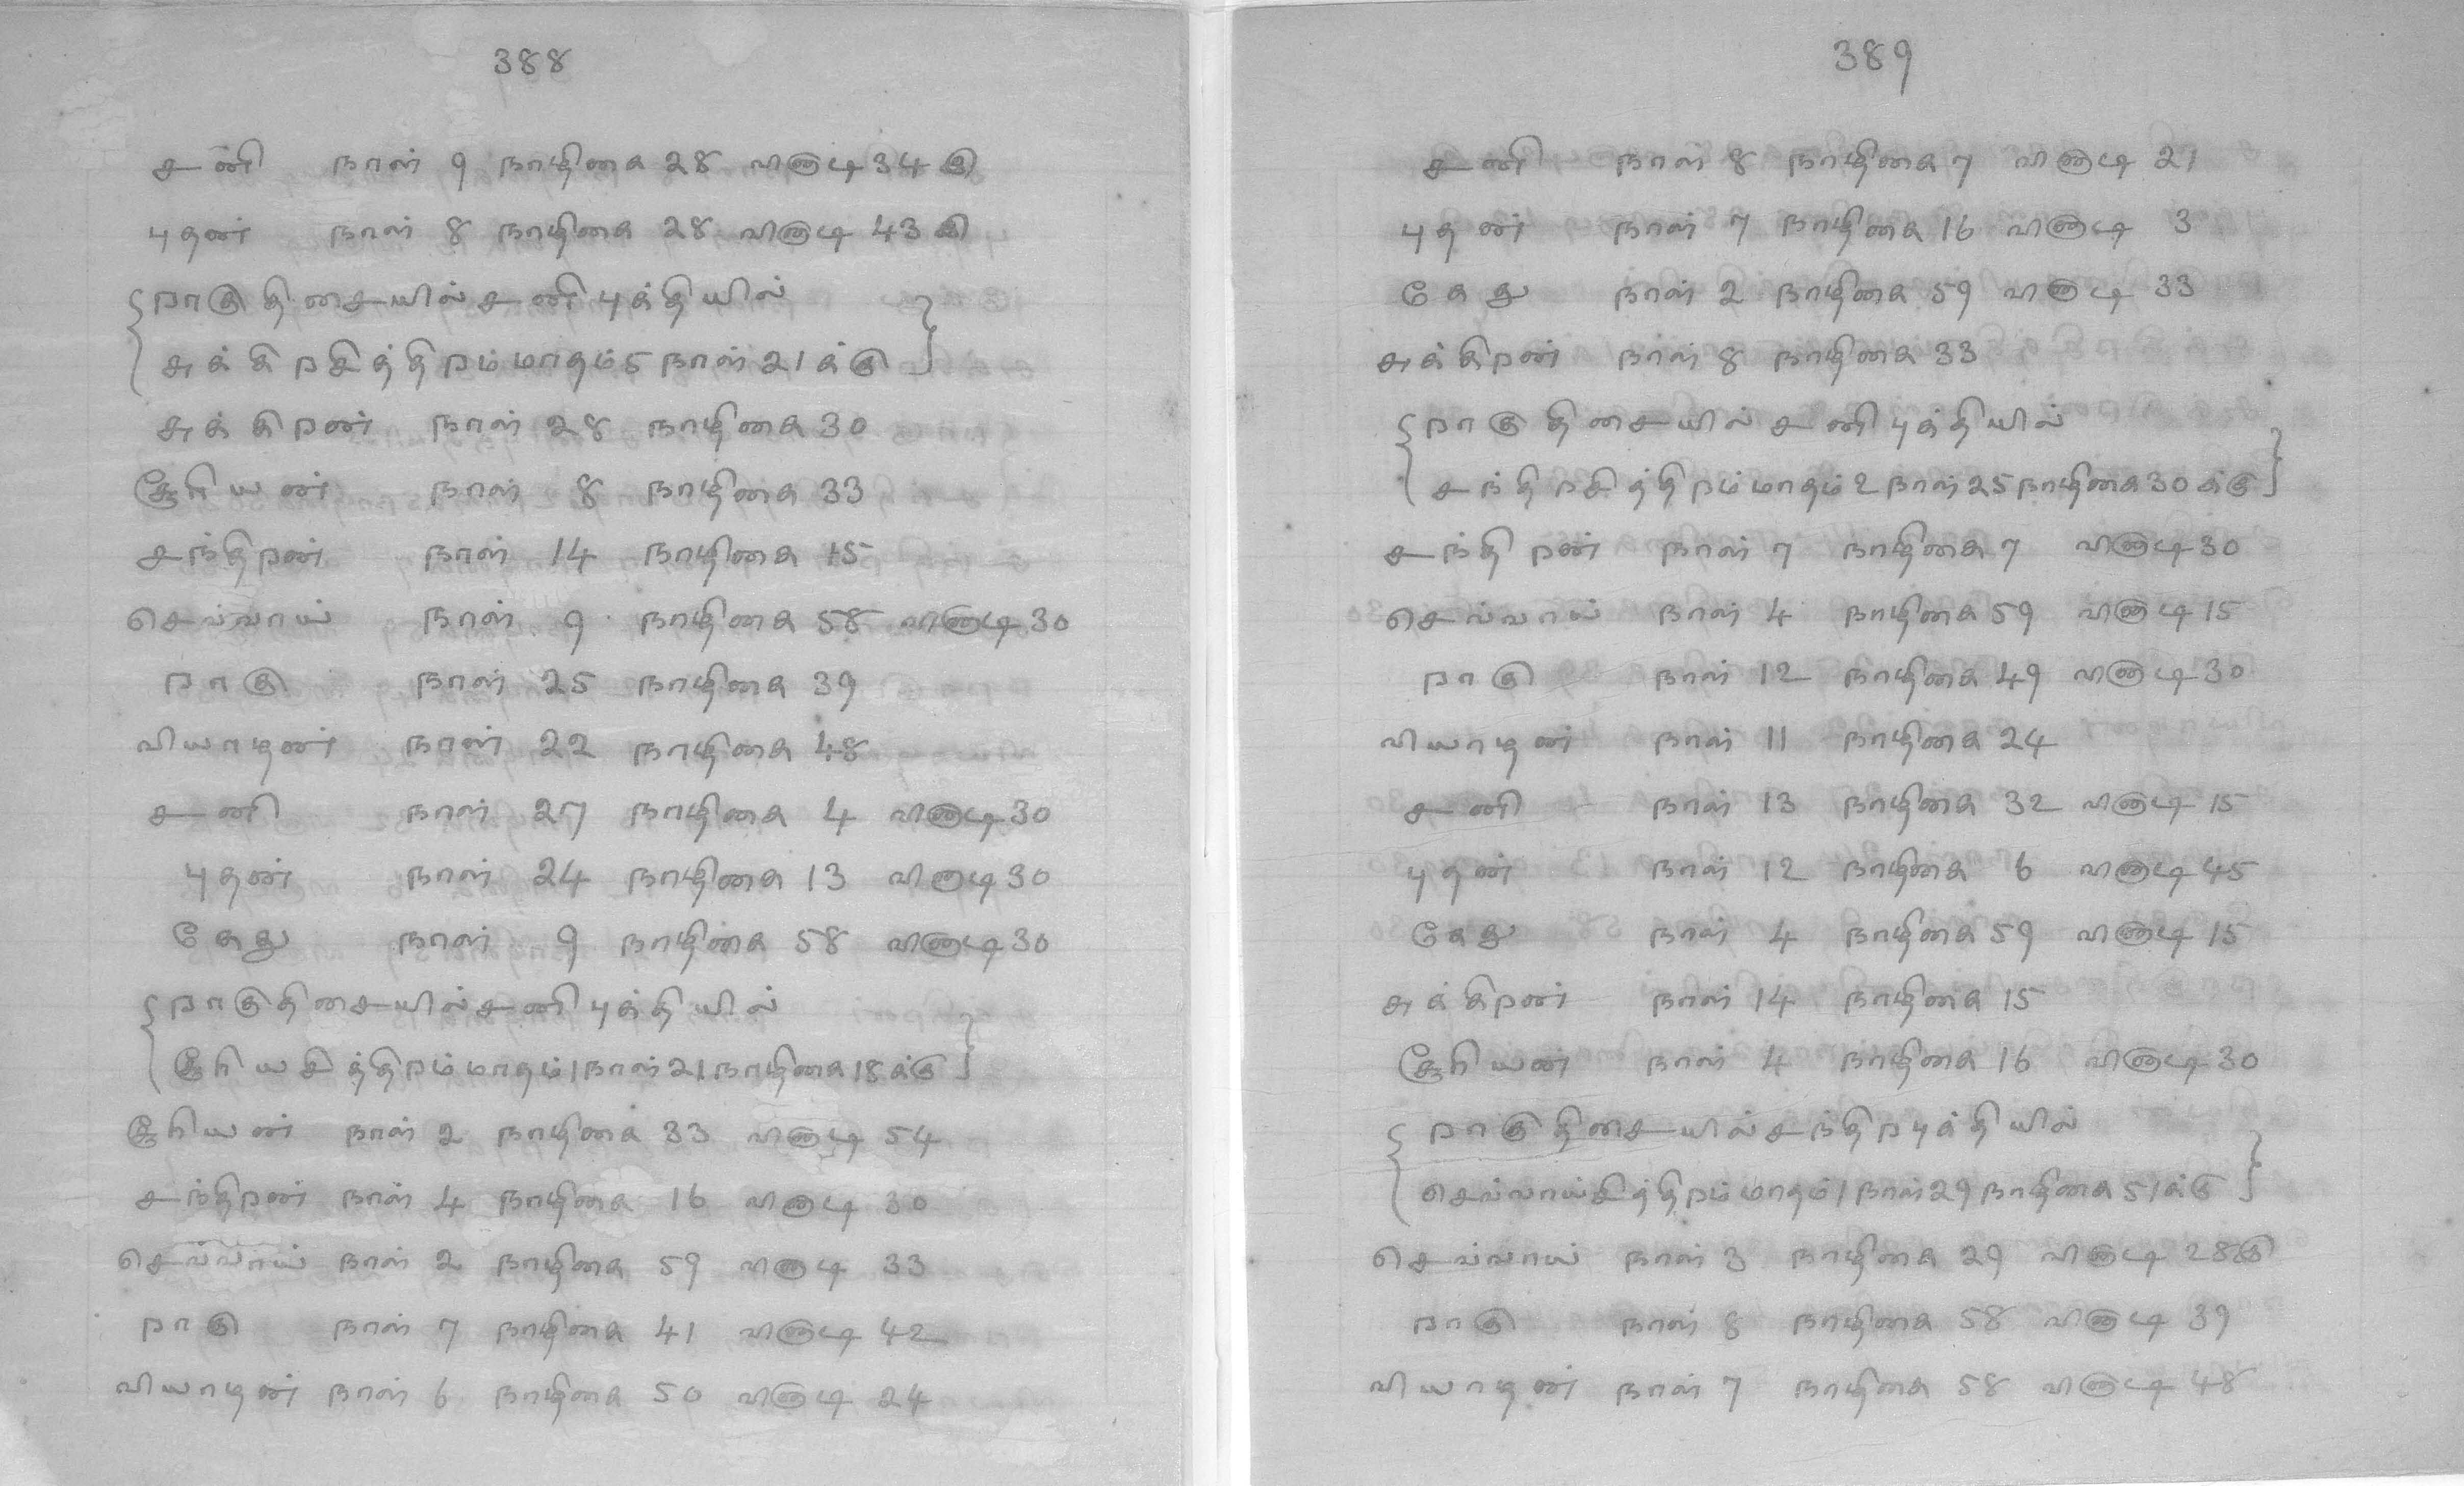 388
சனி நாள் 9 நாழிகை 28 வினாடி 34இ
புதன் நாள் 8 நாழிகை 28 வினாடி 43இ
{றாகு திசையில் சனி புக்தியில்
சுக்கிறசித்திறம் மாதம் 5 நாள் 21க்கு}
சுக்கிறன் நாள் 28 நாழிகை 30
சூரியன் நாள் 8 நாழிகை 33
சந்திறன் நாள் 14 நாழிகை 15
செவ்வாய் நாள் 9 நாழிகை 58 வினாடி 30
றாகு நாள் 25 நாழிகை 39
வியாழன் நாள் 22 நாழிகை 48
சனி நாள் 27 நாழிகை 4 வினாடி 30
புதன் நாள் 24 நாழிகை 13 வினாடி 30
கேது நாள் 9 நாழிகை 58 வினாடி 30
{றாகு திசையில் சனி புக்தியில்
சூரியசித்திறம் மாதம் 1 நாள் 21 நாழிகை 18க்கு}
சூரியன் நாள் 2 நாழிகை 33 வினாடி 54
சந்திறன் நாள் 4 நாழிகை 16 வினாடி 30
செவ்வாய் நாள் 2 நாழிகை 59 வினாடி 33
றாகு நாள் 7 நாழிகை 41 வினாடி 42
வியாழன் நாள் 6 நாழிகை 50 வினாடி 24
389
சனி நாள் 8 நாழிகை 7 வினாடி 21
புதன் நாள் 7 நாழிகை 16 வினாடி 3
கேது நாள் 2 நாழிகை 59 வினாடி 33
சுக்கிறன் நாள் 8 நாழிகை 33
{றாகு திசையில் சனி புக்தியில்
சந்திறசித்திறம் மாதம் 2 நாள் 25 நாழிகை 30க்கு}
சந்திறன் நாள் 7 நாழிகை 7 வினாடி 30
செவ்வாய் நாள் 4 நாழிகை 59 வினாடி 15
றாகு நாள் 12 நாழிகை 49 வினாடி 30
வியாழன் நாள் 11 நாழிகை 24
சனி நாள் 13 நாழிகை 32 வினாடி 15
புதன் நாள் 12 நாழிகை 6 வினாடி 45
கேது நாள் 4 நாழிகை 59 வினாடி 15
சுக்கிறன் நாள் 14 நாழிகை 15
சூரியன் நாள் 4 நாழிகை 16 வினாடி 30
{றாகு திசையில் சந்திற புக்தியில்
செவ்வாய்சித்திறம் மாதம் 1 நாள் 29 நாழிகை 51க்கு}
செவ்வாய் நாள் 3 நாழிகை 29 வினாடி 28இ
றாகு நாள் 8 நாழிகை 58 வினாடி 39
வியாழன் நாள் 7 நாழிகை 58 வினாடி 48